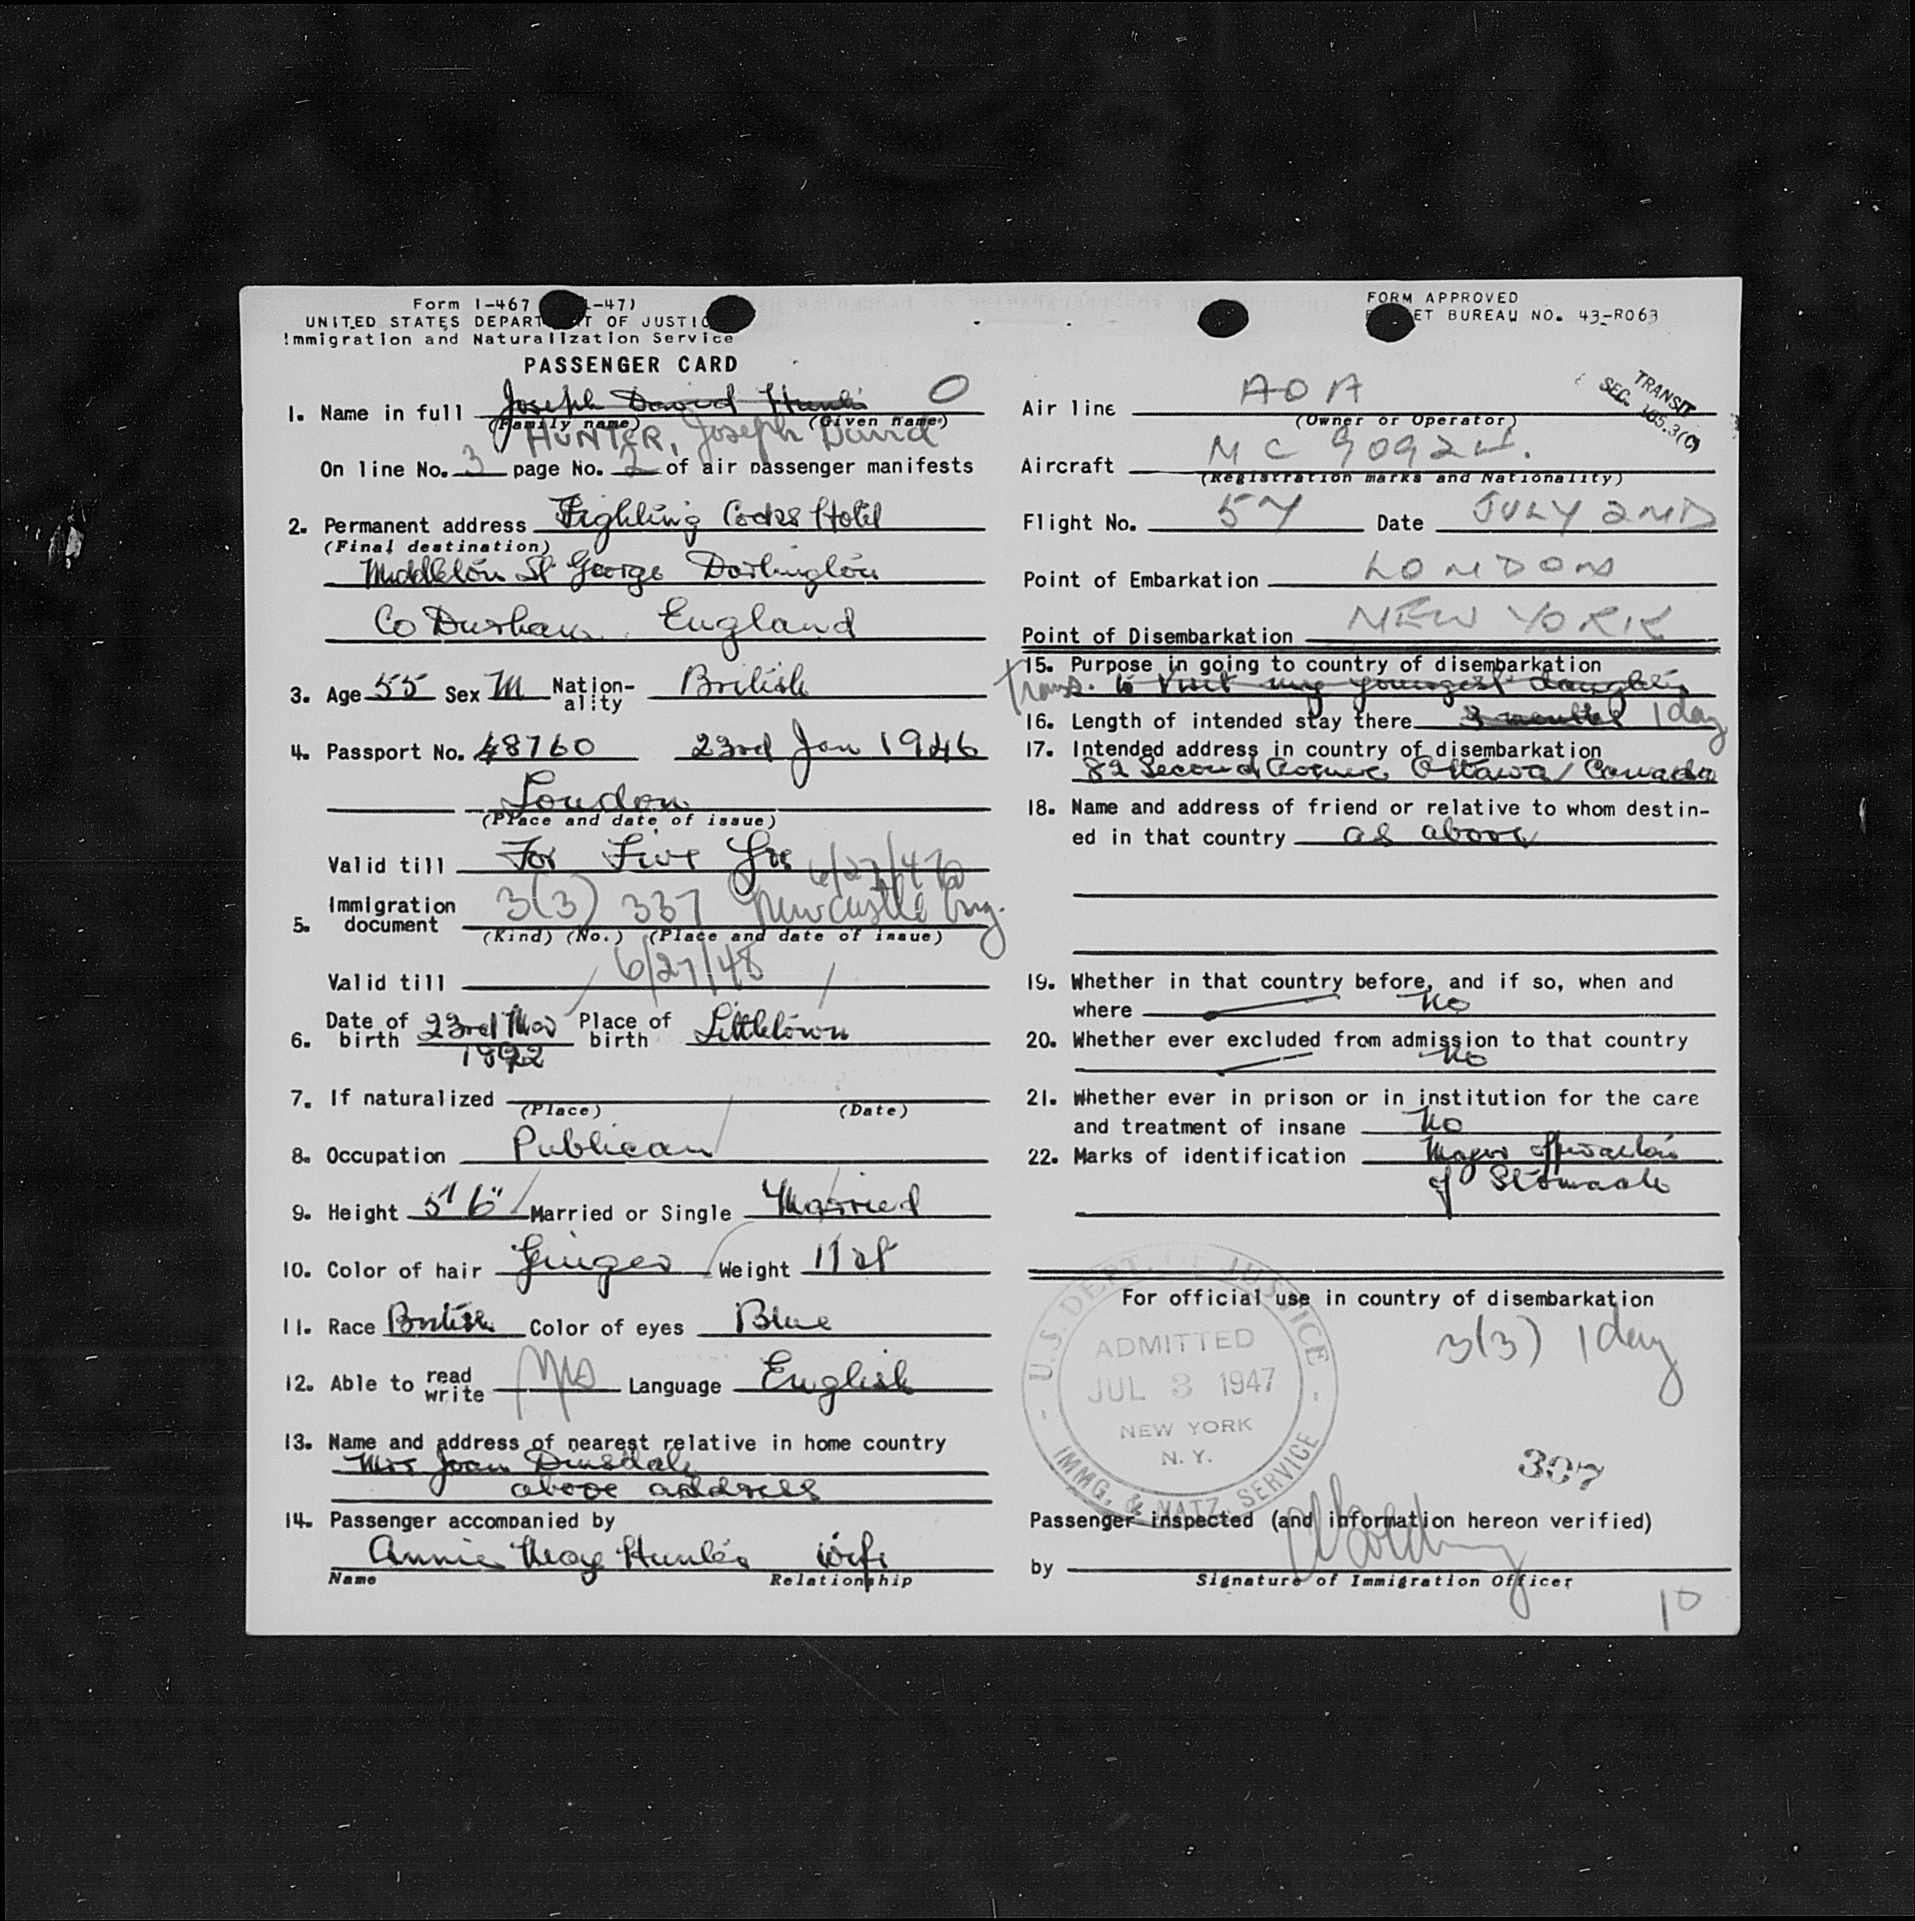 Form I-467 -47)
UNITED STATES DEPART T OF JUSTIC
Immigration and Naturalization Service
PASSENGER CARD
FORM APPROVED
ET BUREAU NO. 43-R063
TRANSIT
SEC. 105.3(C)
1. Name in full Joseph David Hunter O
(Family name) (Given name)
HUNTER, Joseph David
On line No. 3 page No. 2 of air passenger manifests
2. Permanent address Fighting Cocks Hotel
(Final destination)
Middleton St George Darlington
Co Durham. England
3. Age 55 Sex M Nation-ality British
4. Passport No. 48760 23rd Jan 1946
London
(Place and date of issue)
Valid till For Five Yrs 6/27/47
5. Immigration document 3(3) 337 Newcastle Eng.
(Kind) (No.) (Place and date of issue)
Valid till 6/27/48
6. Date of birth 23rd Mar 1892 Place of birth Littletown
7. If naturalized
(Place) (Date)
8. Occupation Publican
9. Height 5' 6" Married or Single Married
10. Color of hair Ginger Weight 11 st
11. Race British Color of eyes Blue
12. Able to read write yes Language English
13. Name and address of nearest relative in home country
Mrs Joan Dinsdale
above address
14. Passenger accompanied by
Annie May Hunter wife
Name Relationship
Air line AOA
(Owner or Operator)
Aircraft MC 90924.
(Registration marks and Nationality)
Flight No. 57 Date JULY 2ND
Point of Embarkation LONDON
Point of Disembarkation NEW YORK
15. Purpose in going to country of disembarkation
Trans. to visit my youngest daughter
16. Length of intended stay there 3 months 1 day
17. Intended address in country of disembarkation
82 Second Avenue Ottawa Canada
18. Name and address of friend or relative to whom destin-
ed in that country as above
19. Whether in that country before, and if so, when and
where No
20. Whether ever excluded from admission to that country
No
21. Whether ever in prison or in institution for the care
and treatment of insane No
22. Marks of identification Major operation
of Stomach
For official use in country of disembarkation
3(3) 1 day
U.S. DEPT. OF JUSTICE
ADMITTED
JUL 3 1947
NEW YORK
N. Y.
IMMG. & NATZ. SERVICE
307
Passenger inspected (and information hereon verified)
by
Signature of Immigration Officer
10